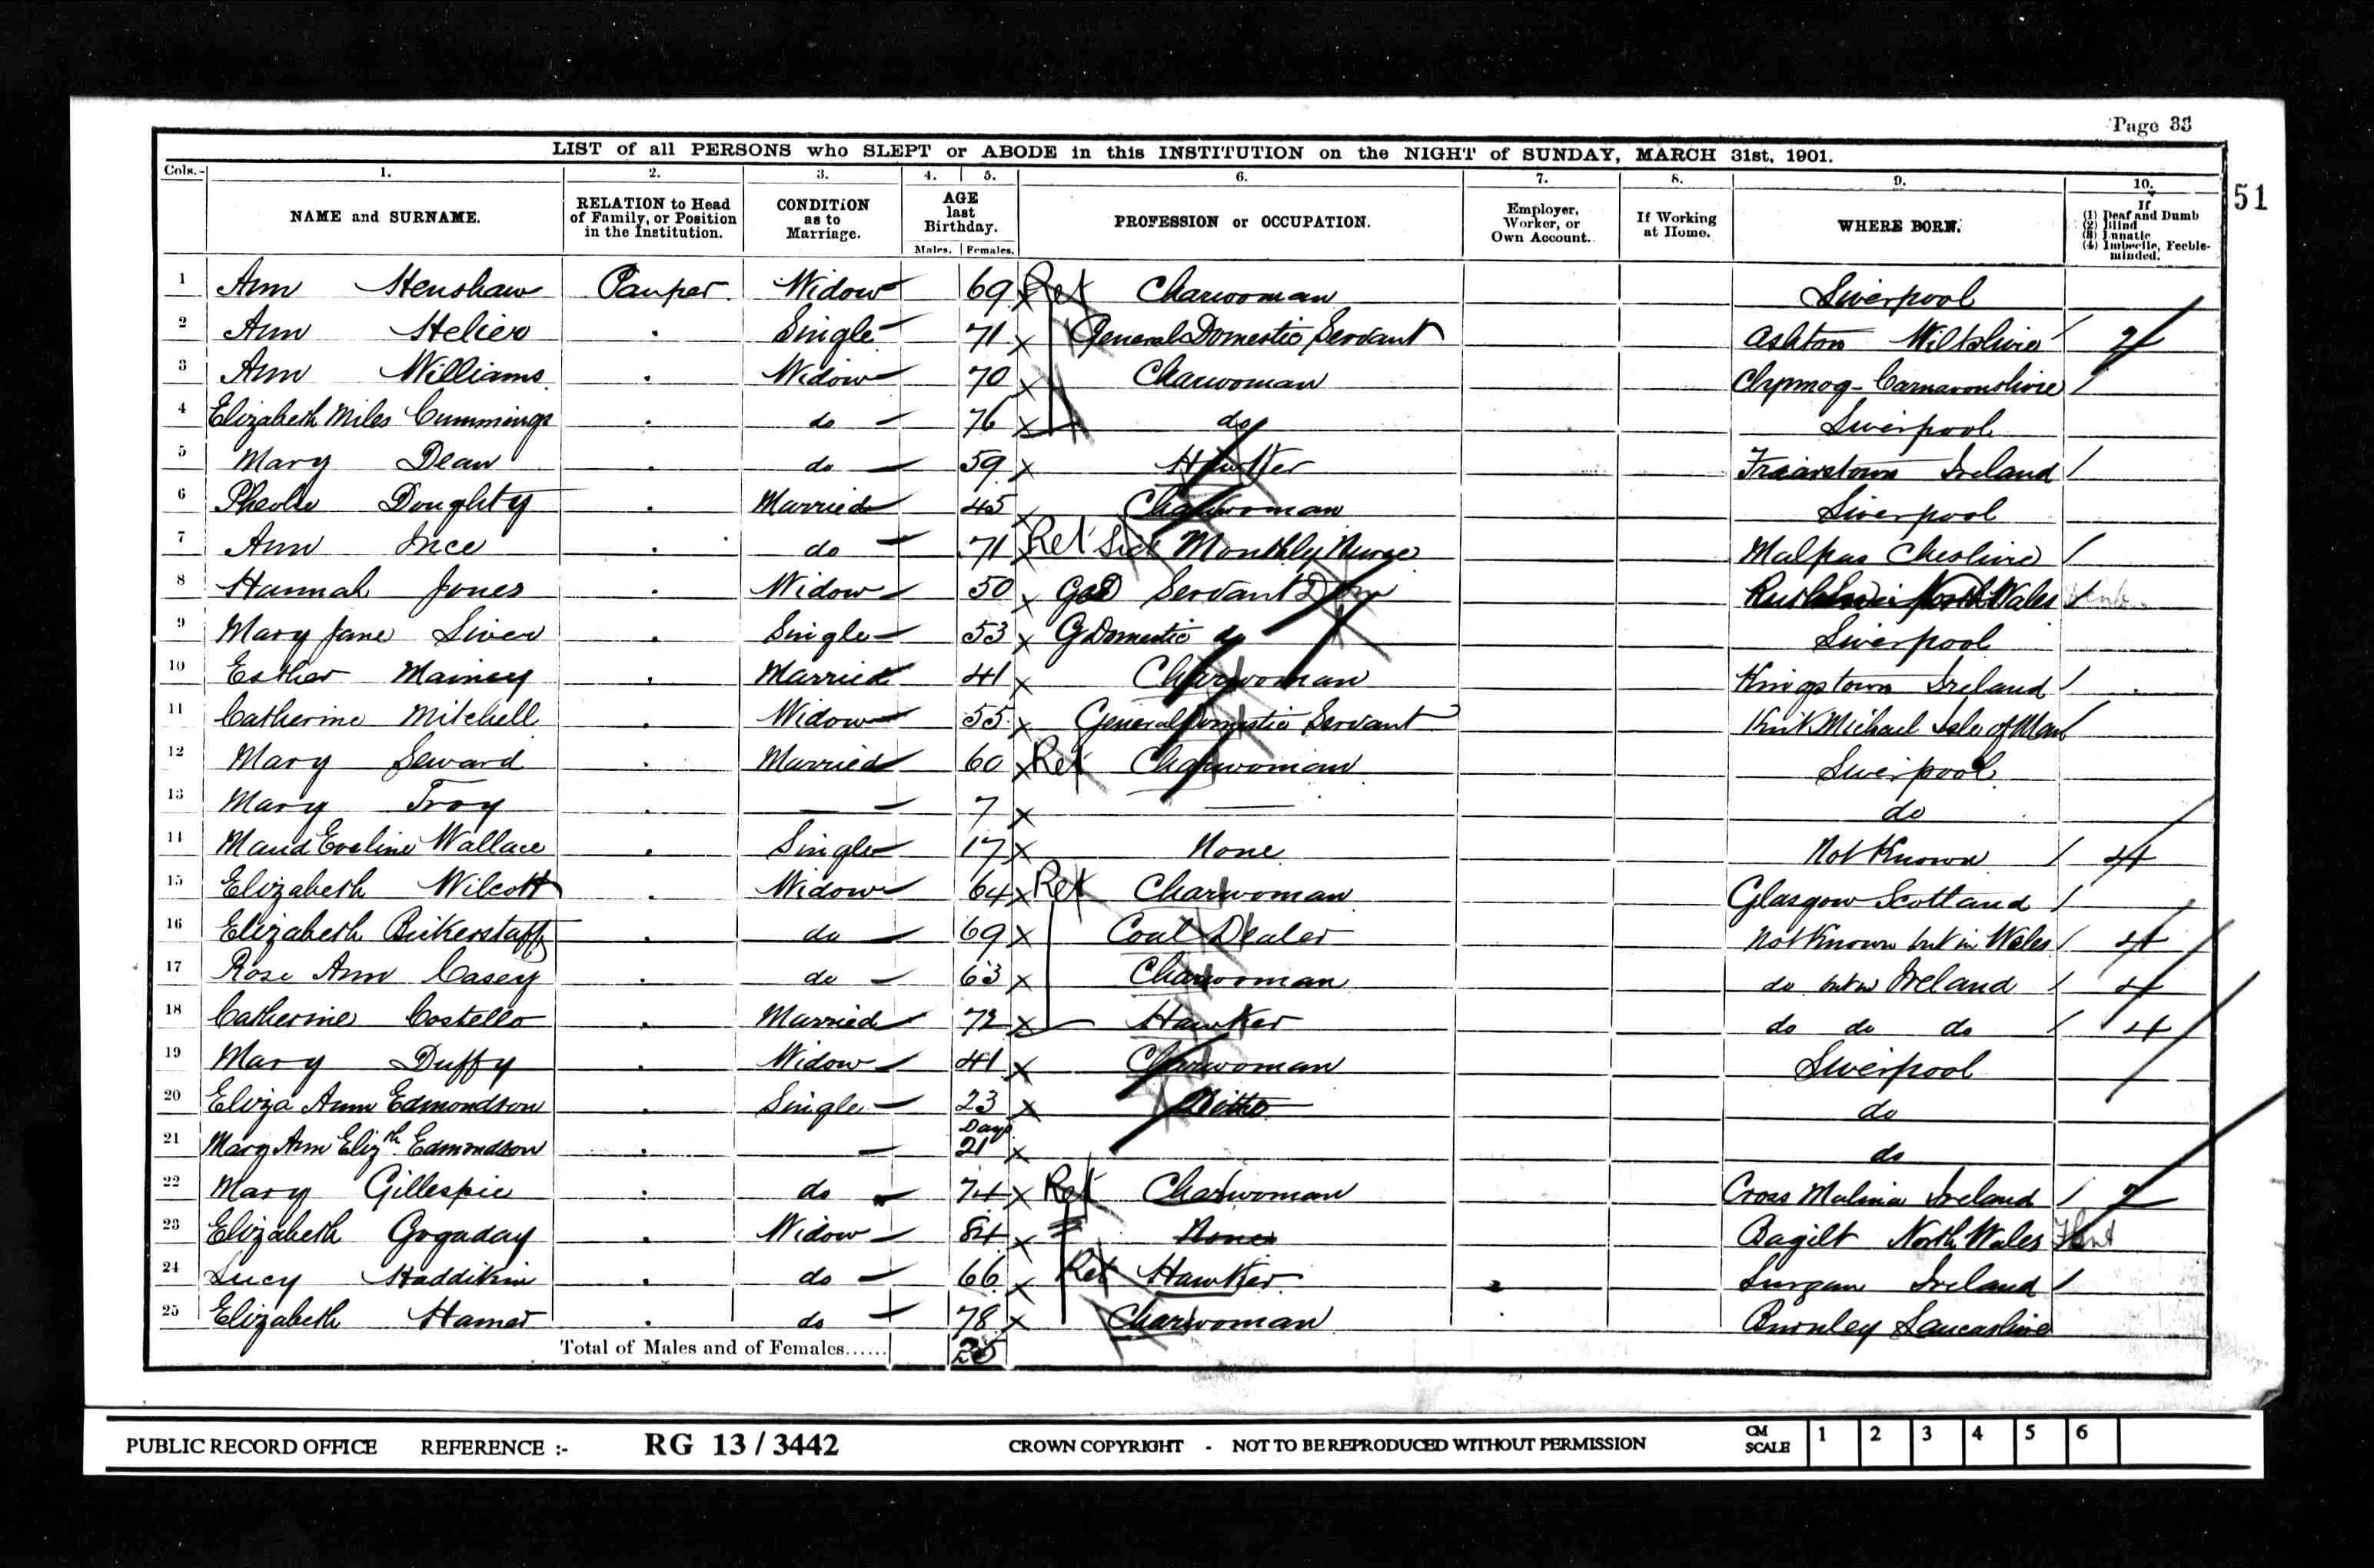 Page 33
LIST of all PERSONS who SLEPT or ABODE in this INSTITUTION on the NIGHT of SUNDAY, MARCH 31st, 1901.
Cols.- 1. 2. 3. 4. 5. 6. 7. 8. 9. 10.
51
NAME and SURNAME. RELATION to Head of Family, or Position in the Institution. CONDITION as to Marriage. AGE last Birthday. Males. Females. PROFESSION or OCCUPATION. Employer, Worker, or Own Account. If Working at Home. WHERE BORN. If (1) Deaf and Dumb (2) Blind (3) Lunatic (4) Imbecile, Feeble-minded.
1 Ann Henshaw Pauper Widow 69 x Ret Charwoman Liverpool
2 Ann Helier . Single 71 x General Domestic Servant Ashton Wiltshire / 2
3 Ann Williams . Widow 70 x Charwoman Carnarvonshire /
4 Elizabeth Miles Cummings . do 76 x do Liverpool
5 Mary Dean . do 59 x Hawker Friarstown Ireland /
6 Pheobe Doughty . Married 45 x Charwoman Liverpool
7 Ann Ince . do 71 x Ret Sick Monthly Nurse Malpas Cheshire /
8 Hannah Jones . Widow 50 x Servant Dom North Wales /
9 Mary Jane Liver . Single 53 x G Domestic do Liverpool
10 Esther Mainey . Married 41 x Charwoman Kingstown Ireland /
11 Catherine Mitchell . Widow 55 x General Domestic Servant Kirk Michael Isle of Man /
12 Mary Seward . Married 60 x Ret Charwoman Liverpool
13 Mary Troy . — 7 x — do
14 Maud Eveline Wallace . Single 17 x None Not Known / 4
15 Elizabeth Wilcott . Widow 64 x Ret Charwoman Glasgow Scotland /
16 Elizabeth Bickerstaff . do 69 x Coal Dealer Not Known but in Wales / 4
17 Rose Ann Casey . do 63 x Charwoman do but in Ireland / 4
18 Catherine Costello . Married 72 x Hawker do do do / 4
19 Mary Duffy . Widow 41 x Charwoman Liverpool
20 Eliza Ann Edmondson . Single 23 x Ditto do
21 Mary Ann Elizth Edmondson . — Days 21 x do
22 Mary Gillespie . do 74 x Ret Charwoman Cross Malina Ireland / 2
23 Elizabeth Gogaday . Widow 84 x None Bagilt North Wales Flint
24 Lucy Haddikin . do 66 x Ret Hawker Lurgan Ireland /
25 Elizabeth Hamer . do 78 x Charwoman Burnley Lancashire
Total of Males and of Females...... 25
PUBLIC RECORD OFFICE REFERENCE :- RG 13 / 3442 CROWN COPYRIGHT - NOT TO BE REPRODUCED WITHOUT PERMISSION CM SCALE 1 2 3 4 5 6